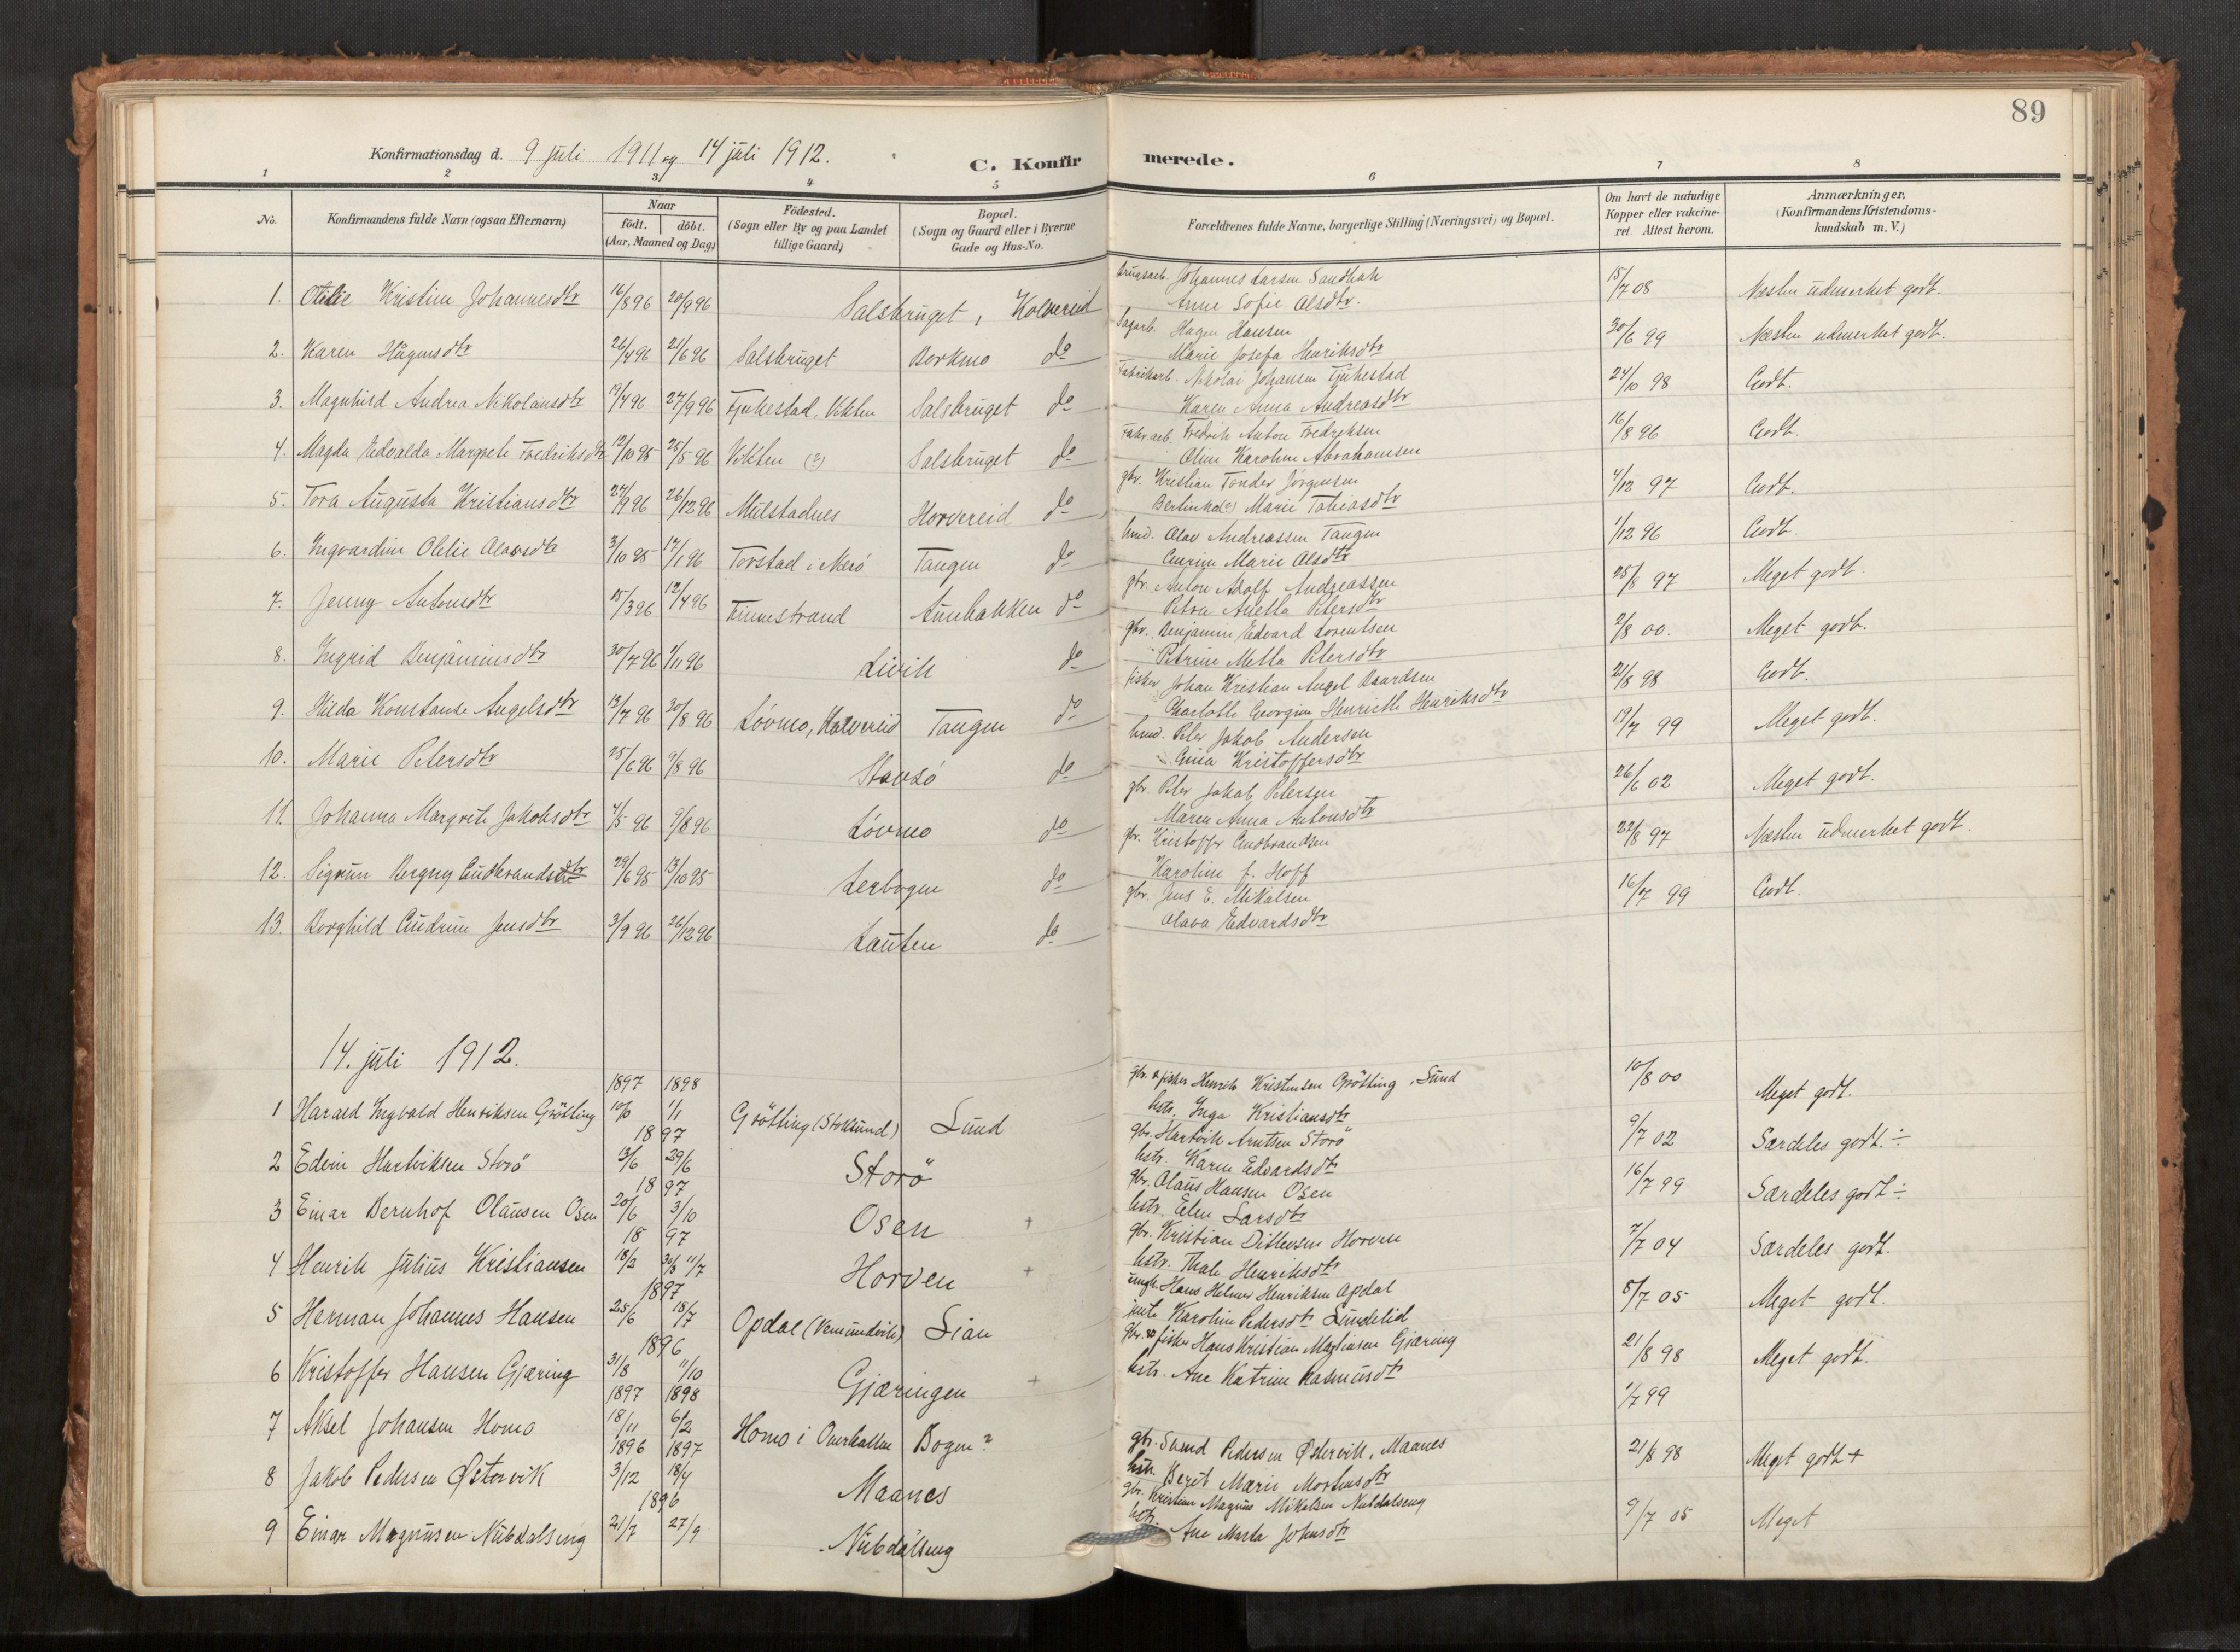 89
Konfirmationsdag d. 9 juli 1911 og 14 juli 1912.
C. Konfirmerede.
1 2 3 4 5 6 7 8
No.
Konfirmandens fulde Navn (ogsaa Efternavn)
Naar
födt. döbt.
(Aar, Maaned og Dag)
Födested.
(Sogn eller By og paa Landet
tillige Gaard)
Bopæl.
(Sogn og Gaard eller i Byerne
Gade og Hus-No.
Forældrenes fulde Navne, borgerlige Stilling (Næringsvei) og Bopæl.
Om havt de naturlige
Kopper eller vakcine-
ret Attest herom.
Anmærkninger,
(Konfirmandens Kristendoms-
kundskab m. V.)
1. Otilie Kristine Johannesdtr 16/8 96 20/9 96 Salsbruget, Kolvereid
Johannes Larsen Sandbak
Anne Sofie Olsdtr.
15/7 08 Næsten udmerket godt.
2. Karen Hågensdtr 26/4 96 21/6 96 Salsbruget Borkmo do
Sagarb. Hagen Hansen
Marie Josefa Henriksdtr
30/6 99 Næsten udmerket godt.
3. Magnhild Andrea Nikolaisdtr 19/4 96 27/9 96 Fjukestad, Vikten Salsbruget do
Fabrikarb. Nikolai Johansen Fjukestad
Karen Anna Andreasdtr
24/10 98 Godt.
4. Magda Edvalda Margrete Fredriksdtr 12/10 95 25/5 96 Vikten (?) Salsbruget do
Fabr. arb. Fredrik Anton Fredriksen
Oline Karoline Abrahamsen
16/8 96 Godt.
5. Tora Augusta Kristiansdtr 27/9 96 26/12 96 Mulstadnes Horvereid do
gbr. Kristian Fonder Jörgensen
Marie Tobiasdtr
4/12 97 Godt.
6. Ingvardine Otelie Olavsdtr 3/10 95 17/1 96 Torstad i Nerö Tangen do
hmd. Olav Andreassen Tangen
Marie Olsdtr
1/12 96 Godt.
7. Jenny Antonsdtr 15/3 96 12/4 96 Finnestrand Aunbakken do
gbr. Anton Adolf Andreassen
Petra Anetta Petersdtr
25/8 97 Meget godt
8. Ingrid Benjaminsdtr 30/7 96 1/11 96 Livik do
gbr. Benjamin Edvard Lorentsen
Petrine Metta Petersdtr
2/8 00. Meget godt.
9. Hilda Konstanse Angelsdtr 13/7 96 30/8 96 Lövmo, Kolvereid Tangen do
fisker Johan Kristian Angel Baardsen
Charlotte Georgine Henriette Henriksdtr
21/8 98 Godt.
10. Marie Petersdtr 25/6 96 9/8 96 do
hmd. Peter Jakob Andersen
Kristoffersdtr
19/7 99 Meget godt.
11. Johanna Margrete Jakobsdtr 4/5 96 9/8 96 Lövmo do
gbr. Peter Jakob Petersen
Maren Anna Antonsdtr
26/6 02 Meget godt.
12. Sigrun Bergny Gudbrandsdtr 29/6 95 13/10 95 Lerbogen do
gbr. Kristoffer Gudbrandsen
Karoline f. Hoff
22/8 97 Næsten udmerket godt.
13. Borghild Gudrun Jensdtr 3/9 96 26/12 96 Lauten do
gbr. Jens E. Mikalsen
Olava Edvardsdtr
16/7 99 Godt.
14. juli 1912.
1897 1898
1 Harald Ingvald Henriksen Grötting 10/6 1/1 Grötting (Stoksund) Lund
gbr. & fisker Henrik Kristensen Grötting, Lund
hstr. Inga Kristiansdtr
10/8 00 Meget godt.
1897
2 Edvin Hartviksen Storö 13/6 29/6 Storö
gbr. Hartvik Arntsen Storö
hstr. Karen Edvardsdtr
9/7 02 Særdeles godt ÷
1897
3 Einar Bernhof Olausen Osen 20/6 3/10 Osen +
gbr. Olaus Hansen Osen
hstr. Elen Larsdtr
16/7 99 Særdeles godt ÷
1897
4 Henrik Julius Kristiansen 18/2 30/5 11/7 Horven +
gbr. Kristian Ditlevsen Horven
hstr. Thale Henriksdtr
7/7 04 Særdeles godt.
1897
5 Herman Johannes Hansen 25/6 18/7 Opdal (Vemundvik) Lian
ungk. Hans Helmer Henriksen Opdal
pike Karoline Pedersdtr Lundelid
5/7 05 Meget godt.
1896
6 Kristoffer Hansen Gjæring 31/8 11/10 Gjæringen +
gbr. & fisker Hans Kristian Martinsen Gjæring
hstr. Ane Katrine Rasmusdtr
21/8 98 Meget godt.
1897 1898
7 Aksel Johansen Homo 18/11 6/2 Homo i Overhallen Bogen?
1/7 99
1896 1897
8 Jakob Pedersen Østervik 3/12 18/4 Maanes
gbr. Svend Pedersen Østervik, Maanes
hstr. Beret Marie Mortensdtr
21/8 98 Meget godt +
1896
9 Einar Magnusen Nubdalseng 21/7 27/9 Nubdalseng
gbr. Kristian Magnus Mikalsen Nubdalseng
hstr. Ane Marta Johnsdtr
9/7 05 Meget